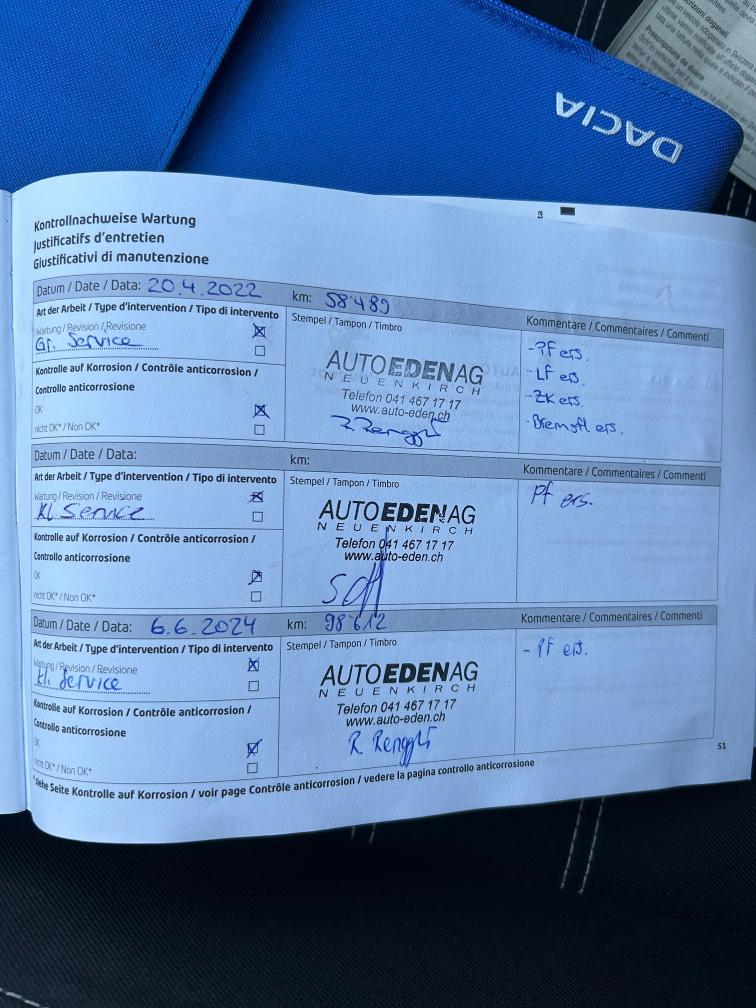 DACIA
Kontrollnachweise Wartung
Justificatifs d'entretien
Giustificativi di manutenzione
Datum / Date / Data: 20.4.2022 km: 58'489
Art der Arbeit / Type d'intervention / Tipo di intervento
Wartung / Revision / Revisione
Gr. Service
Kontrolle auf Korrosion / Contrôle anticorrosion /
Controllo anticorrosione
OK
nicht OK* / Non OK*
Stempel / Tampon / Timbro
AUTO EDEN AG
NEUENKIRCH
Telefon 041 467 17 17
www.auto-eden.ch
R. Renggli
Kommentare / Commentaires / Commenti
- PF ers.
- LF ers.
- ZK ers.
- Bremsfl ers.
Datum / Date / Data: km:
Art der Arbeit / Type d'intervention / Tipo di intervento
Wartung / Revision / Revisione
Kl. Service
Kontrolle auf Korrosion / Contrôle anticorrosion /
Controllo anticorrosione
OK
nicht OK* / Non OK*
Stempel / Tampon / Timbro
AUTO EDEN AG
NEUENKIRCH
Telefon 041 467 17 17
www.auto-eden.ch
Kommentare / Commentaires / Commenti
Pf ers.
Datum / Date / Data: 6.6.2024 km: 98'612
Art der Arbeit / Type d'intervention / Tipo di intervento
Wartung / Revision / Revisione
Kl. Service
Kontrolle auf Korrosion / Contrôle anticorrosion /
Controllo anticorrosione
OK
nicht OK* / Non OK*
Stempel / Tampon / Timbro
AUTO EDEN AG
NEUENKIRCH
Telefon 041 467 17 17
www.auto-eden.ch
R. Renggli
Kommentare / Commentaires / Commenti
- PF ers.
51
*siehe Seite Kontrolle auf Korrosion / voir page Contrôle anticorrosion / vedere la pagina controllo anticorrosione